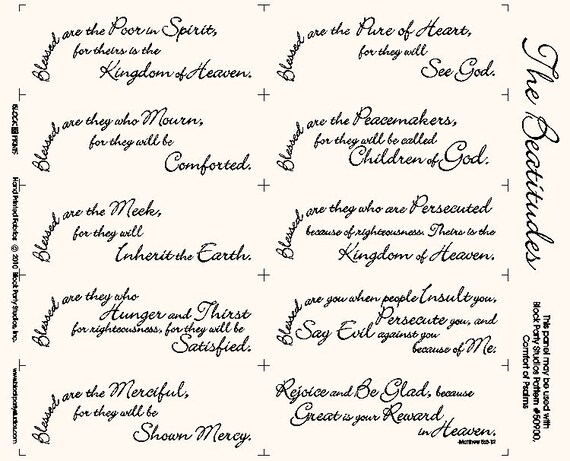 Blessed are the Poor in Spirit,
for theirs is the
Kingdom of Heaven.
Blessed are they who Mourn,
for they will be
Comforted.
Blessed are the Meek,
for they will
Inherit the Earth.
Blessed are they who
Hunger and Thirst
for righteousness, for they will be
Satisfied.
Blessed are the Merciful,
for they will be
Shown Mercy.
Blessed are the Pure of Heart,
for they will
See God.
Blessed are the Peacemakers,
for they will be called
Children of God.
Blessed are they who are Persecuted
because of righteousness. Theirs is the
Kingdom of Heaven.
Blessed are you when people Insult you,
Persecute you, and
Say Evil against you
because of Me.
Rejoice and Be Glad, because
Great is your Reward
in Heaven.
-Matthew 5:3-12
The Beatitudes
This panel may be used with
Block Party Studios Pattern #50900,
Comfort of Psalms
BLOCK PRINTS
Hand Printed Fabrics © 2010 Block Party Studios, Inc.
www.blockpartystudios.com